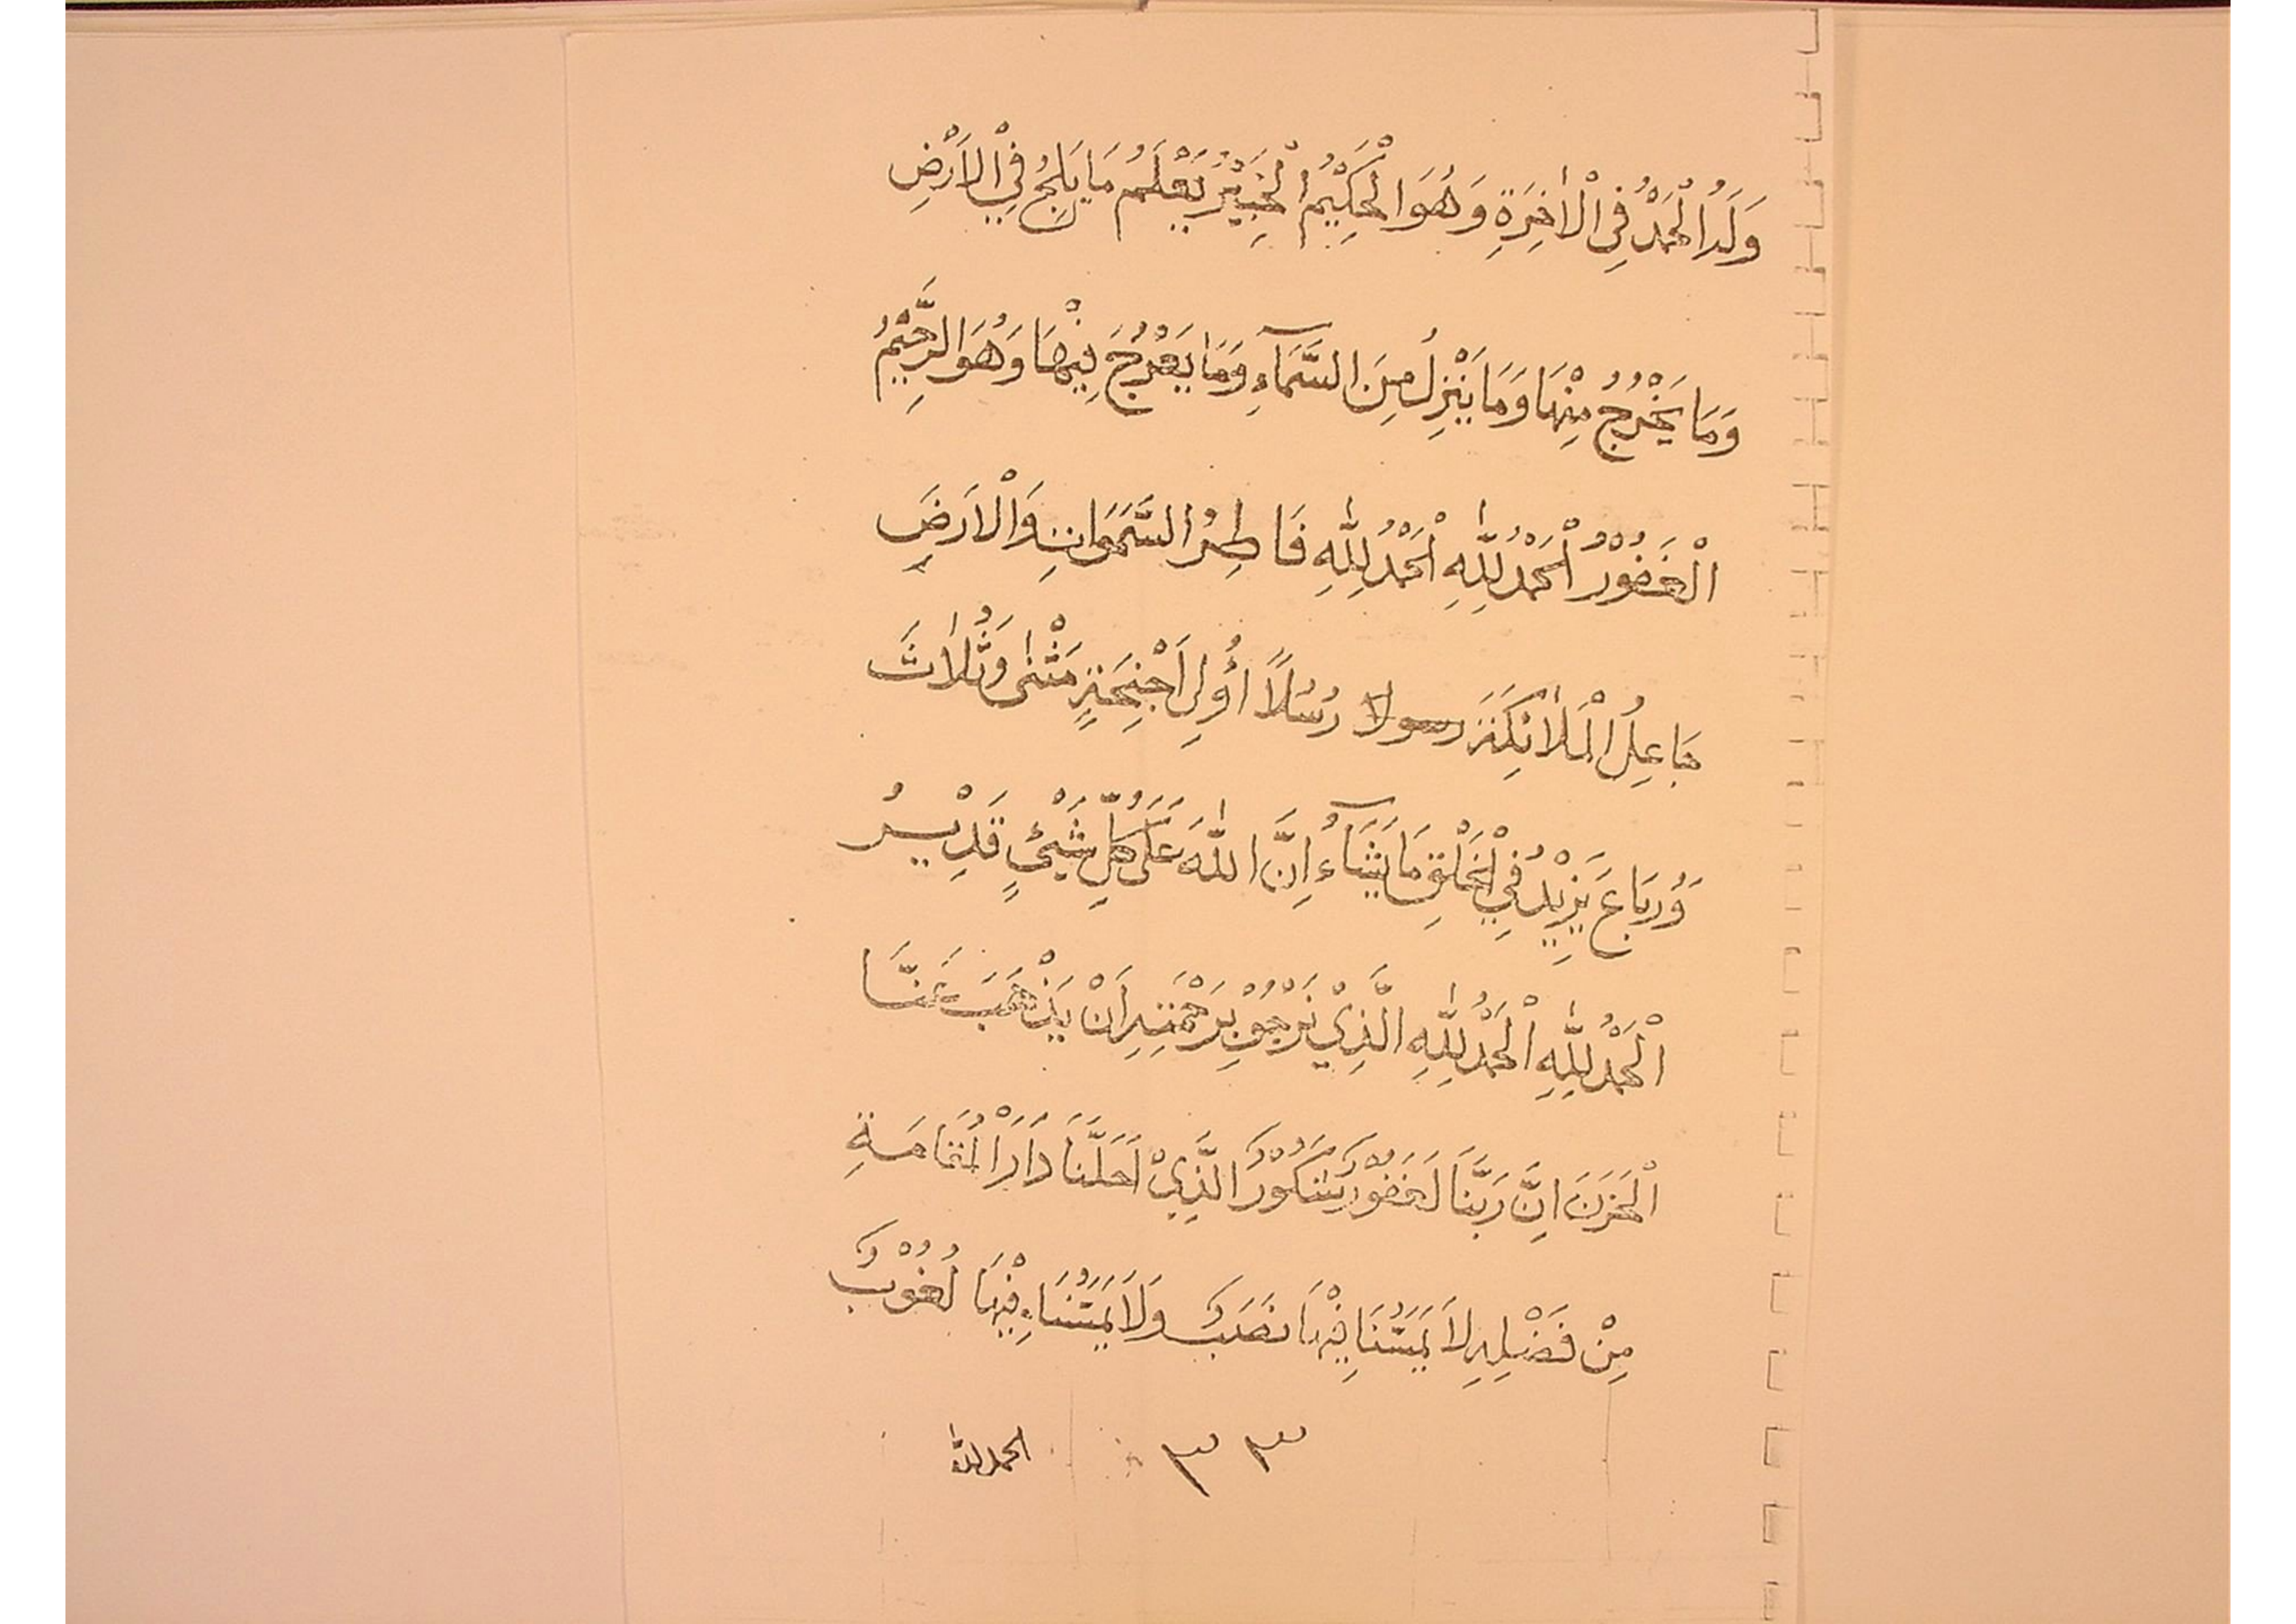 وَلَهُ الْحَمْدُ فِي الْاٰخِرَةِ وَهُوَ الْحَكِيْمُ الْخَبِيْرُ يَعْلَمُ مَا يَلِجُ فِي الْاَرْضِ
وَمَا يَخْرُجُ مِنْهَا وَمَا يَنْزِلُ مِنَ السَّمَآءِ وَمَا يَعْرُجُ فِيْهَا وَهُوَ الرَّحِيْمُ
الْغَفُوْرُ اَلْحَمْدُ لِلّٰهِ اَلْحَمْدُ لِلّٰهِ فَاطِرُ السَّمَوَاتِ وَالْاَرْضِ
جَاعِلُ الْمَلٰئِكَةَ رسولا رُسُلًا اُولِى اَجْنِحَةٍ مَثْنٰى وَثُلٰاثَ
وَرُبَاعَ يَزِيْدُ فِي الْخَلْقِ مَا يَشَآءُ اِنَّ اللّٰهَ عَلَى كُلِّ شَيْئٍ قَدِيْرُ
اَلْحَمْدُ لِلّٰهِ اَلْحَمْدُ لِلّٰهِ الَّذِيْ نَرْجُوْ بِرَحْمَتِهِ اَنْ يَذْهَبَ عَنَّا
الْحَزَنَ اِنَّ رَبَّنَا لَغَفُوْرٌ شَكُوْرٌ الَّذِيْ اَحَلَّنَا دَارَ الْمُقَامَةِ
مِنْ فَضْلِهِ لَا يَمَسُّنَا فِيْهَا نَصَبٌ وَلَا يَمَسُّنَا فِيْهَا لُغُوْبٌ
٣٣ الحمد لله